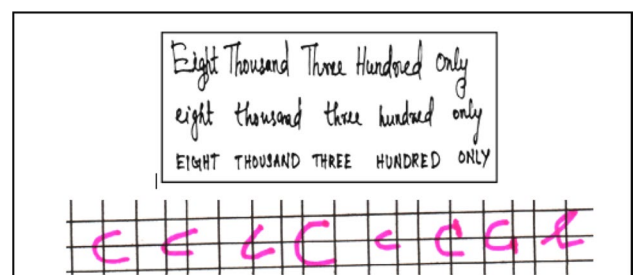 Eight Thousand Three Hundred Only
eight thousand three hundred only
EIGHT THOUSAND THREE HUNDRED ONLY
C C C C C C G e